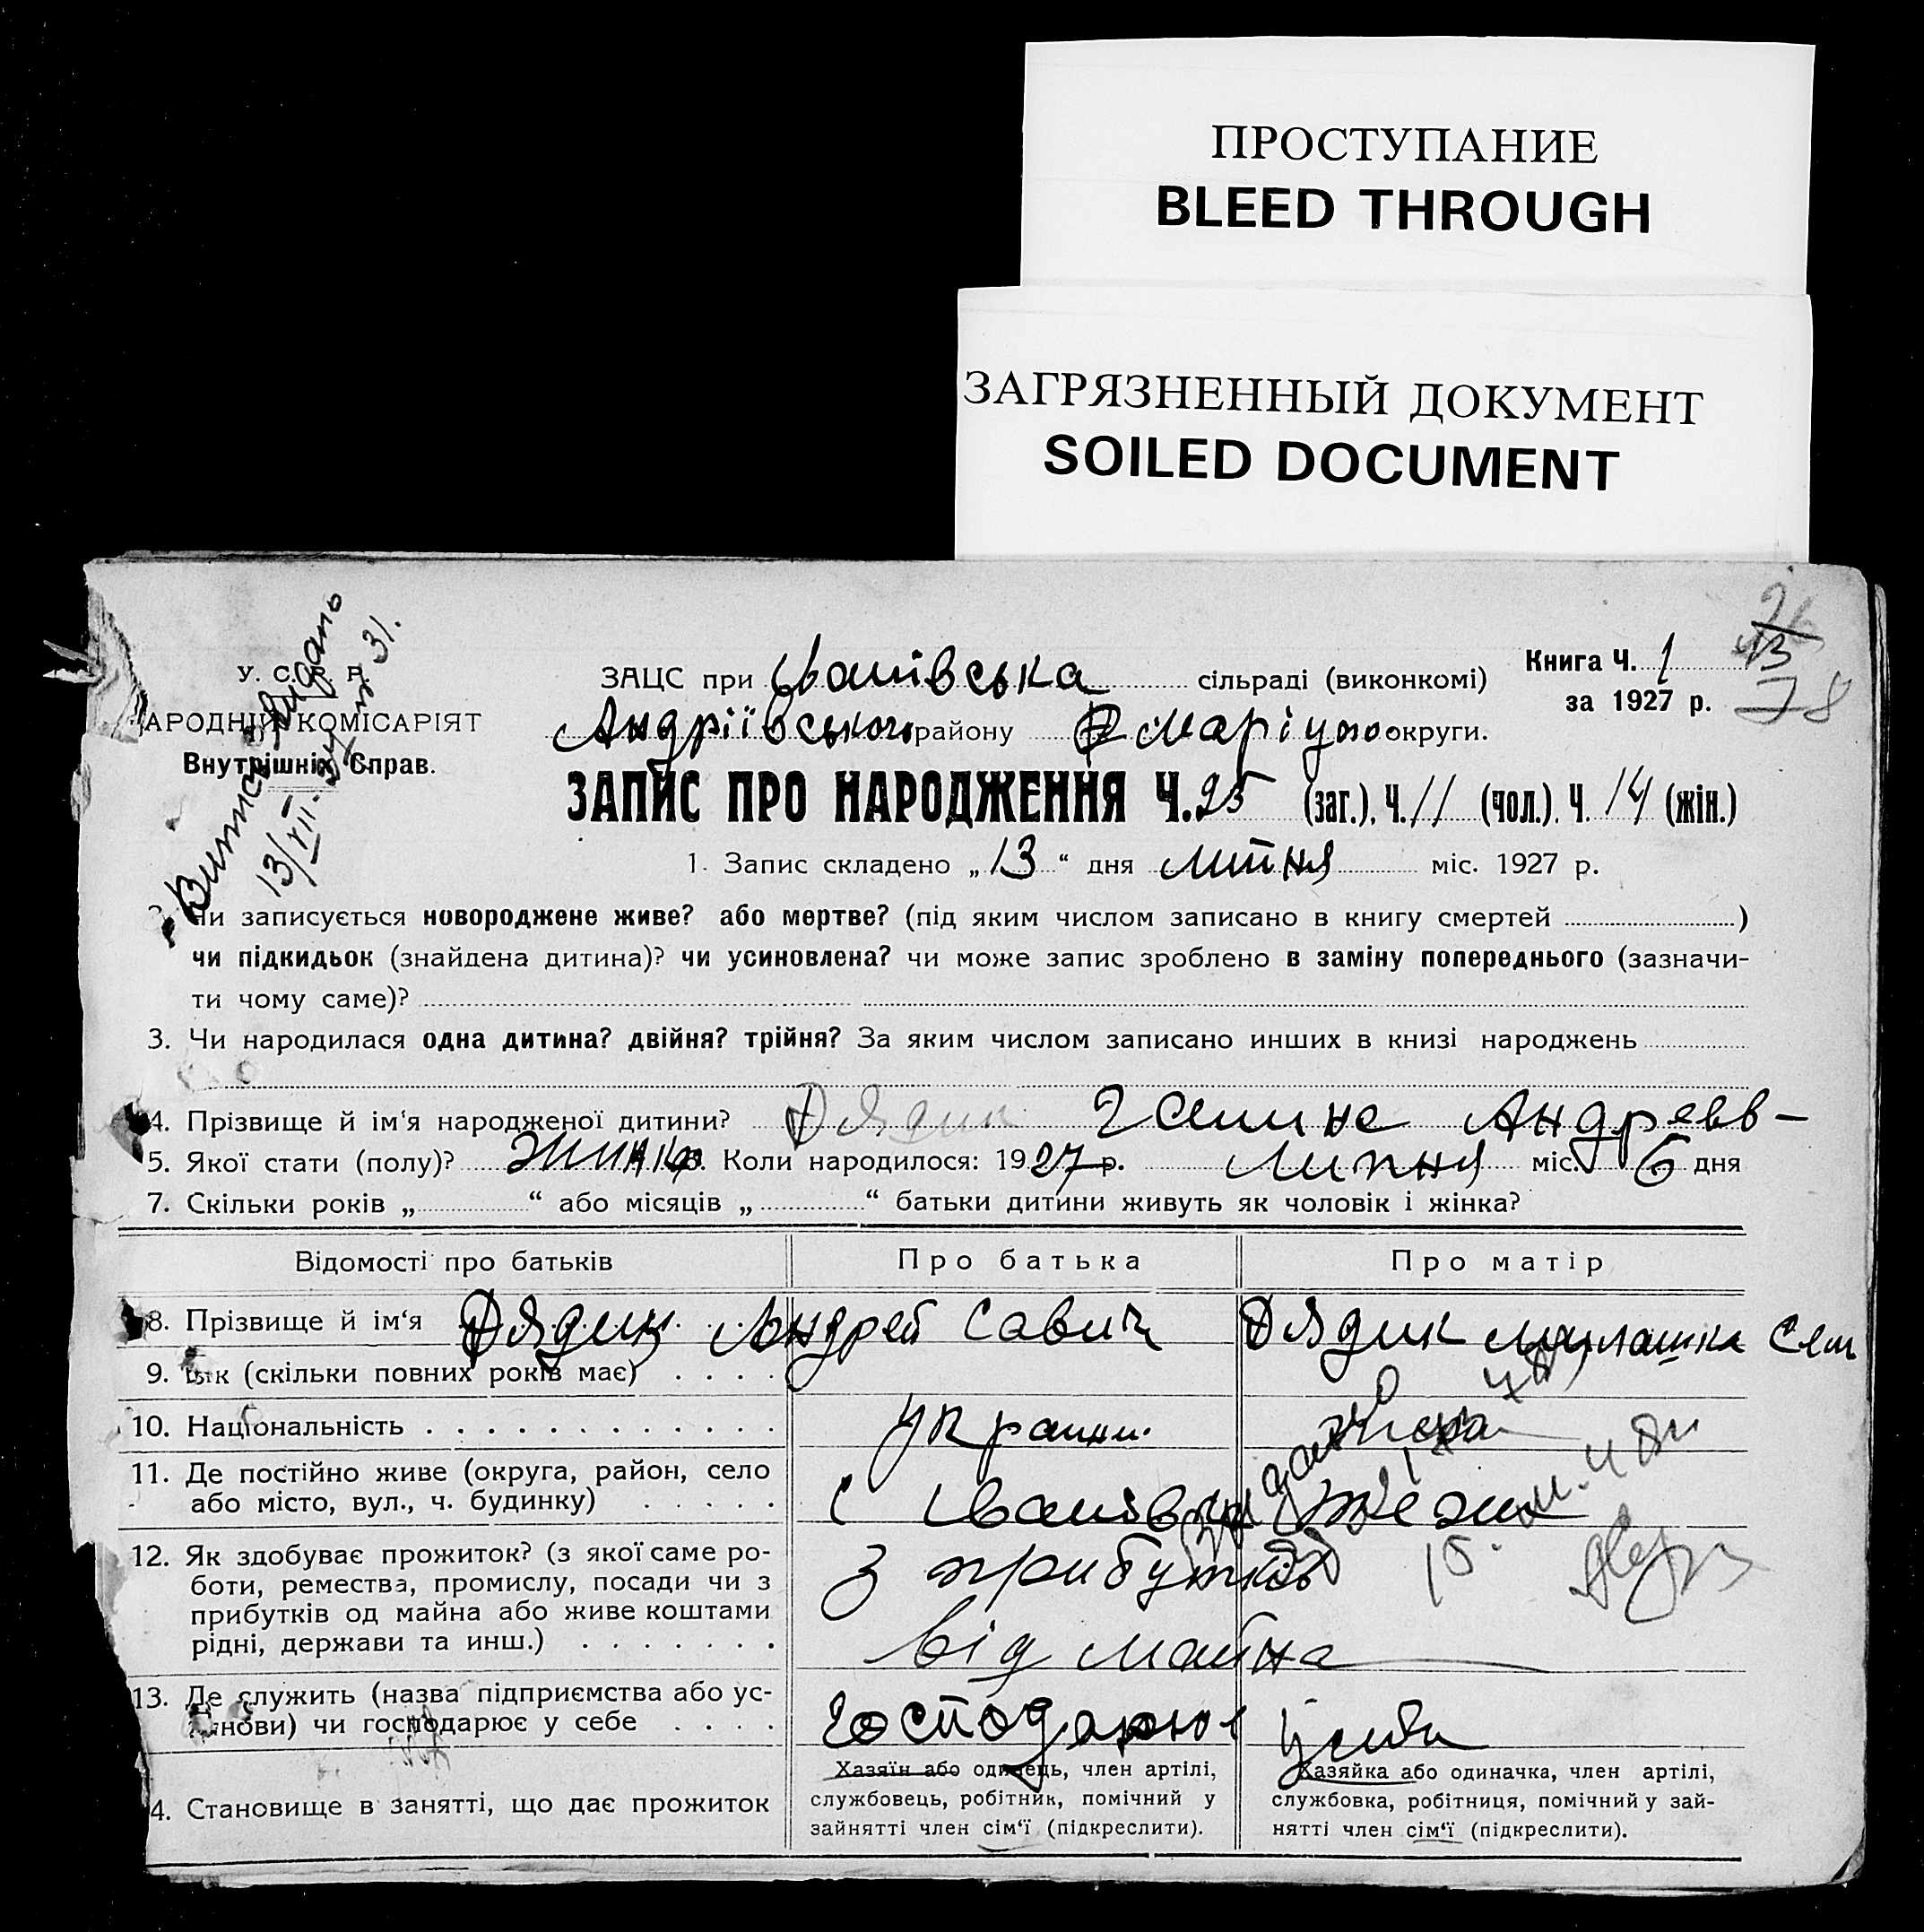 ПРОСТУПАНИЕ
BLEED THROUGH
ЗАГРЯЗНЕННЫЙ ДОКУМЕНТ
SOILED DOCUMENT
У. С. Р. Р.
АРОДНІЙ КОМІСАРІЯТ
Внутрішніх Справ.
13/VII 31.
ЗАЦС при івашівська сільраді (виконкомі)
Книга Ч. 1
за 1927 р.
78
Андріївського району Маріупо округи.
ЗАПИС ПРО НАРОДЖЕННЯ Ч. 25 (заг.), Ч. 11 (чол.). Ч. 14 (жін.)
1. Запис складено „13“ дня липня міс. 1927 р.
Чи записується новороджене живе? або мертве? (під яким числом записано в книгу смертей )
чи підкидьок (знайдена дитина)? чи усиновлена? чи може запис зроблено в заміну попереднього (зазначи-
ти чому саме)?
3. Чи народилася одна дитина? двійня? трійня? За яким числом записано инших в книзі народжень
4. Прізвище й ім‘я народженої дитини? Дядик Галина Андреев-
5. Якої стати (полу)? жинка Коли народилося: 1927 р. Липня міс. 6 дня
7. Скільки років „ “ або місяців „ “ батьки дитини живуть як чоловік і жінка?
Відомості про батьків Про батька Про матір
8. Прізвище й ім‘я Дядик Андрей Савич Дядик Милашка
9. Вік (скільки повних років має)
10. Національність
11. Де постійно живе (округа, район, село
або місто, вул., ч. будинку) с
12. Як здобуває прожиток? (з якої саме ро-
боти, ремества, промислу, посади чи з
прибутків од майна або живе коштами
рідні, держави та инш.)
З прибутків
від майна
13. Де служить (назва підприємства або ус-
танови) чи господарює у себе господарює у себе
4. Становище в занятті, що дає прожиток
Хазяїн або одинець, член артілі,
службовець, робітник, помічний у
зайнятті член сім‘ї (підкреслити).
Хазяйка або одиначка, член артілі,
службовка, робітниця, помічний у зай-
нятті член сім‘ї (підкреслити).